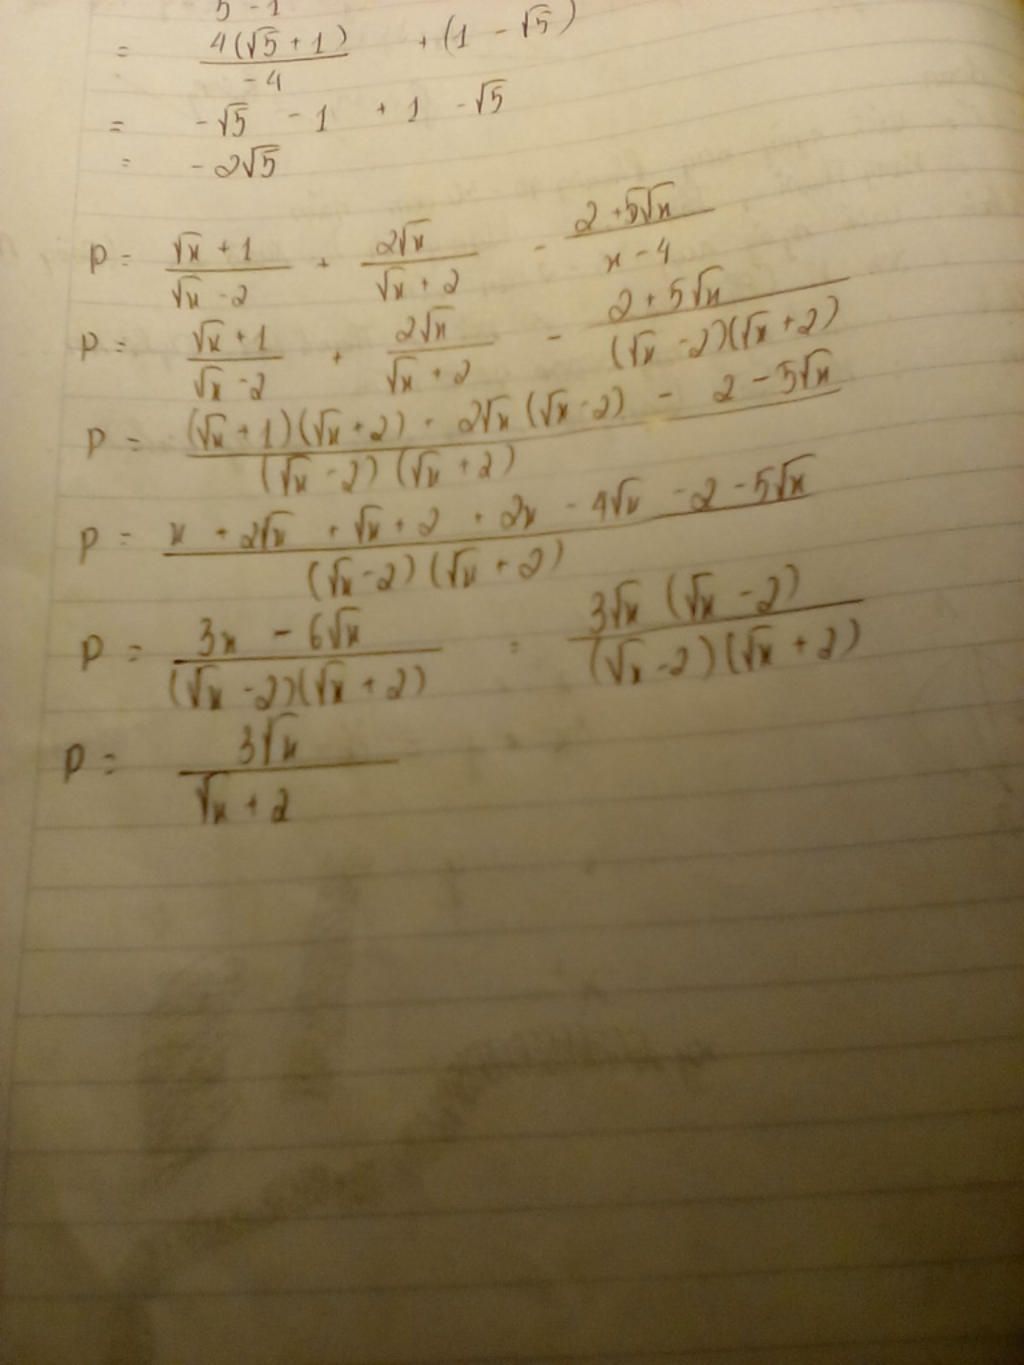 5 - 1
= 4(√5 + 1) / -4 + (1 - √5)
= -√5 - 1 + 1 - √5
= -2√5
P = (√x + 1)/(√x - 2) + 2√x/(√x + 2) - (2 + 5√x)/(x - 4)
P = (√x + 1)/(√x - 2) + 2√x/(√x + 2) - (2 + 5√x)/((√x - 2)(√x + 2))
P = ((√x + 1)(√x + 2) + 2√x(√x - 2) - 2 - 5√x)/((√x - 2)(√x + 2))
P = (x + 2√x + √x + 2 + 2x - 4√x - 2 - 5√x)/((√x - 2)(√x + 2))
P = (3x - 6√x)/((√x - 2)(√x + 2)) = 3√x(√x - 2)/((√x - 2)(√x + 2))
P = 3√x/(√x + 2)